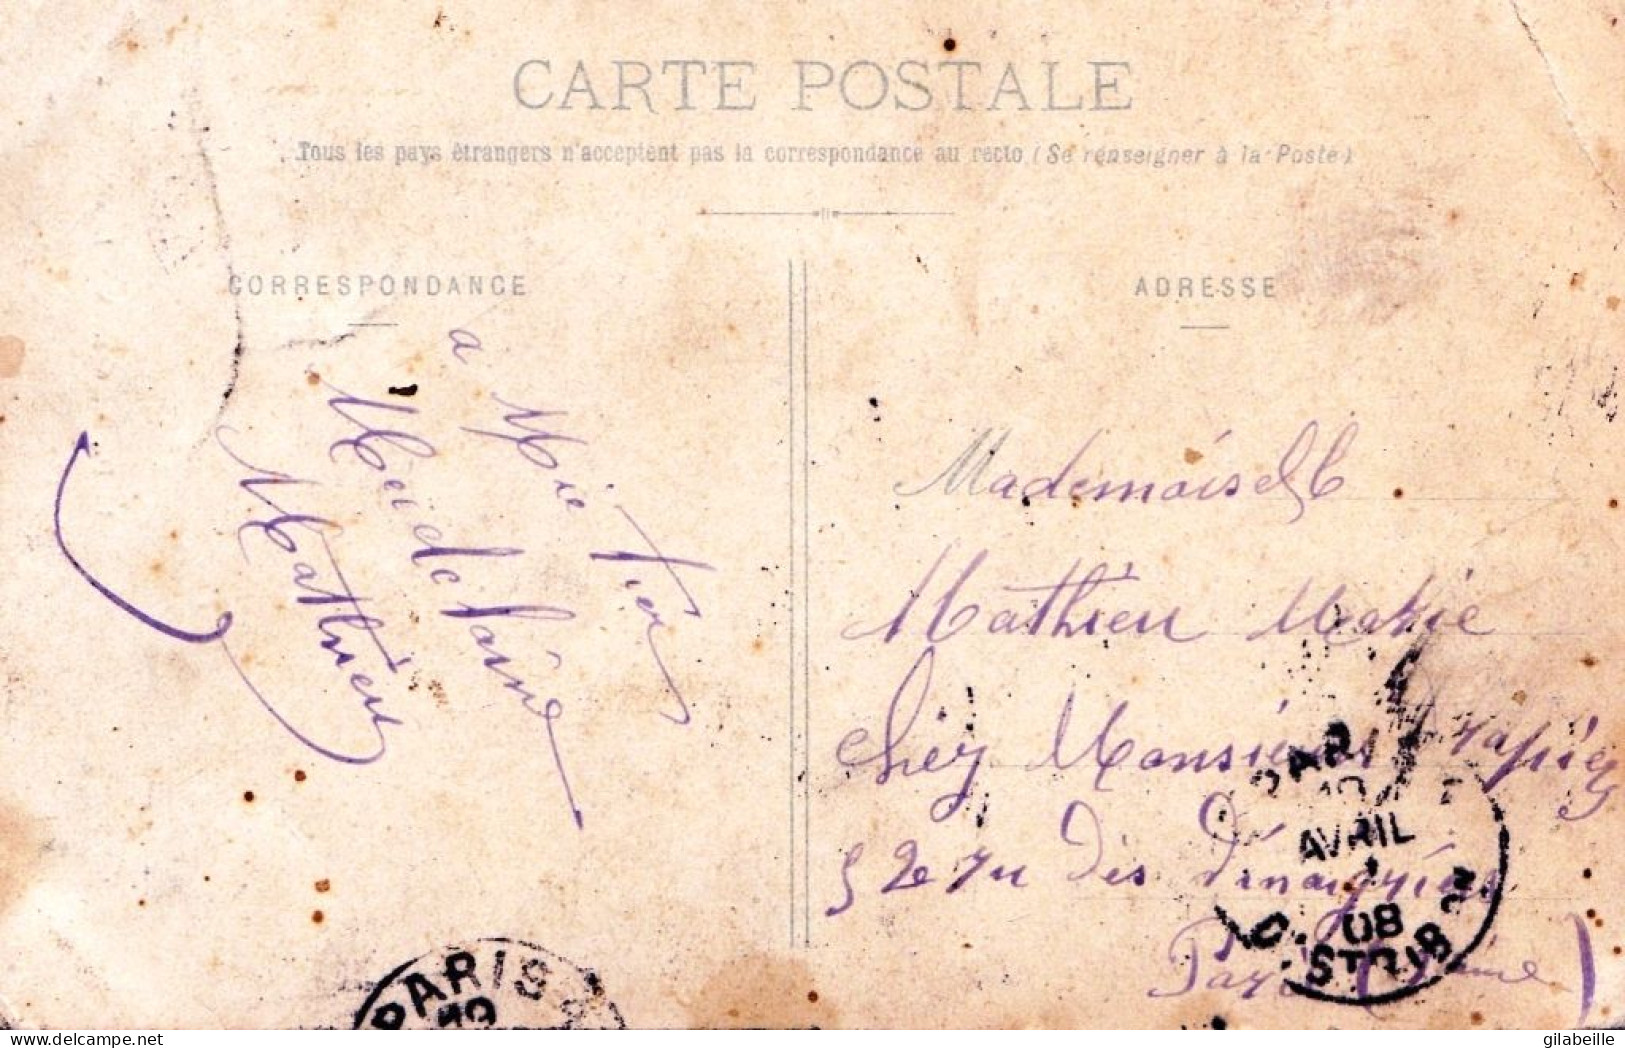 CARTE POSTALE
Tous les pays étrangers n'acceptent pas la correspondance au recto (Se renseigner à la Poste)
CORRESPONDANCE
a
Madelaine
Mathieu
ADRESSE
Mademoiselle
Mathieu Marie
chéz Monsieur
52 ru des
Paris
PARIS
AVRIL
08
DISTRIB
PARIS
www.delcampe.net
gilabeille